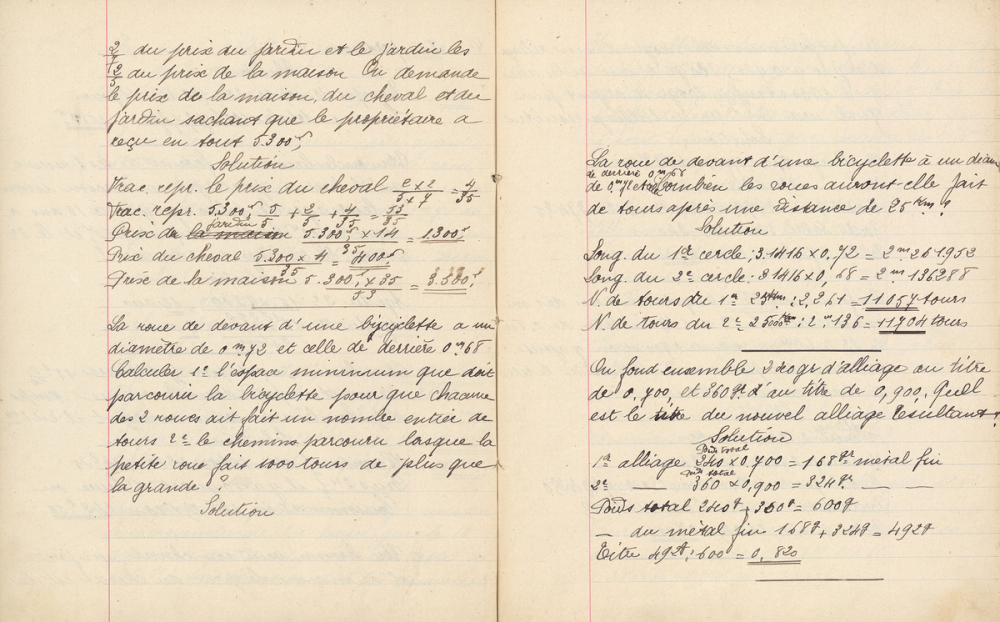 2/7 du prix du jardin et le jardin les
2/5 du prix de la maison On demande
le prix de la maison, du cheval et du
jardin sachant que le propriétaire a
reçu en tout 5.300f
Solution
Frac. repr. le prix du cheval 2 x 2 / 5 x 7 = 4/35
Frac. repr. 5.300f 5/5 + 2/5 + 4/35 = 53/35
jardin
Prix de la maison 5.300f x 14 = 1300f
Prix du cheval 5.300 x 4 = 400f
Prix de la maison 5.300f x 35 / 53 = 3.500f
La roue de devant d'une bicyclette a un
diamètre de 0m72 et celle de derrière 0m68
Calculer 1º l'espace minimum que doit
parcourir la bicyclette pour que chacune
des 2 roues ait fait un nombre entier de
tours 2º le chemin parcouru lorsque la
petite roue fait 1000 tours de plus que
la grande ?
Solution
La roue de devant d'une bicyclette à un diam
de derrière 0m68
de 0m72 et Combien les roues auront-elle fait
de tours après une distance de 25 Km ?
Solution
Long. du 1er cercle : 3.1416 x 0,72 = 2m261952
Long. du 2e cercle : 3.1416 x 0,68 = 2m136288
N. de tours du 1er 25Km : 2,261 = 11057 tours
N. de tours du 2e 25000 : 2m136 = 11704 tours
On fond ensemble 240gr d'alliage au titre
de 0,700, et 360gr d'au titre de 0,900, Quell
est le titre du nouvel alliage résultant ?
Solution
Poids total
1er alliage 240 x 0,700 = 168gr métal fin
Poids total
2e — 360 x 0,900 = 324gr — —
Poids total 240g + 360g = 600g
— du métal fin 168g + 324g = 492g
Titre 492g : 600 = 0,820